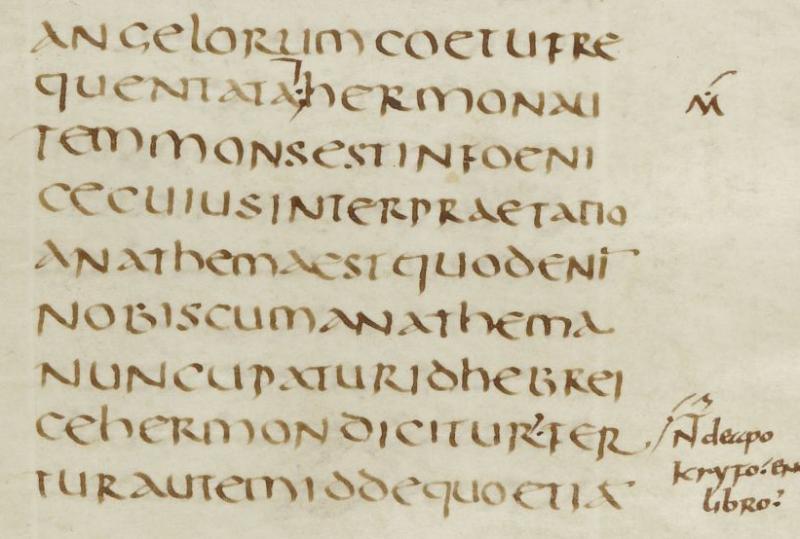 ANGELORUM COETU FRE
QUENTATA HERMON AU
TEM MONS EST IN FOENI
CE CUIUS INTERPRAETATIO
ANATHEMA EST QUOD ENĪ
NOBISCUM ANATHEMA
NUNCUPATUR ID HEBREI
CE HERMON DICITUR·FER
TUR AUTEM IDDE QUO ETIĀ
de apo
libro